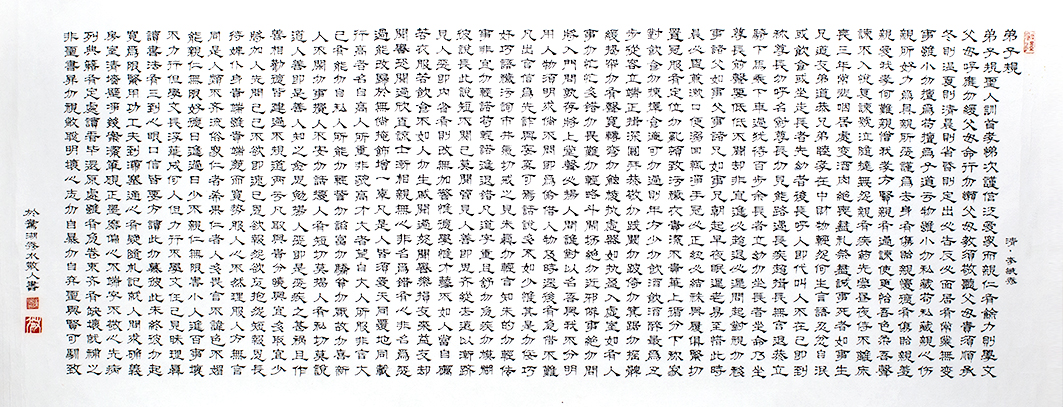 弟子規
清 李毓秀
弟子規聖人訓首孝悌次謹信泛愛眾而親仁有餘力則學文
父母呼應勿緩父母命行勿懶父母教須敬聽父母責須順承
冬則溫夏則凊晨則省昏則定出必告反必面居有常業無變
事雖小勿擅為苟擅為子道虧物雖小勿私藏苟私藏親心傷
親所好力為具親所惡謹為去身有傷貽親憂德有傷貽親羞
親愛我孝何難親憎我孝方賢親有過諫使更怡吾色柔吾聲
諫不入悅復諫號泣隨撻無怨親有疾藥先嘗晝夜侍不離床
喪三年常悲咽居處變酒肉絕喪盡禮祭盡誠事死者如事生
兄道友弟道恭兄弟睦孝在中財物輕怨何生言語忍忿自泯
或飲食或坐走長者先幼者後長呼人即代叫人不在己即到
稱尊長勿呼名對尊長勿見能路遇長疾趨揖長無言退恭立
騎下馬乘下車過猶待百步餘長者立幼勿坐長者坐命乃坐
尊長前聲要低低不聞卻非宜進必趨退必遲問起對視勿移
事諸父如事父事諸兄如事兄朝起早夜眠遲老易至惜此時
晨必盥兼漱口便溺回輒淨手冠必正紐必結襪與履俱緊切
置冠服有定位勿亂頓致污穢衣貴潔不貴華上循分下稱家
對飲食勿揀擇食適可勿過則年方少勿飲酒飲酒醉最為醜
步從容立端正揖深圓拜恭敬勿踐閾勿跛倚勿箕踞勿搖髀
緩揭簾勿有聲寬轉彎勿觸棱執虛器如執盈入虛室如有人
事勿忙忙多錯勿畏難勿輕略鬥鬧場絕勿近邪僻事絕勿問
將入門問孰存將上堂聲必揚人問誰對以名吾與我不分明
用人物須明求倘不問即為偷借人物及時還後有急借不難
凡出言信為先詐與妄奚可焉話說多不如少惟其是勿佞巧
奸巧語穢污詞市井氣切戒之見未真勿輕言知未的勿輕傳
事非宜勿輕諾苟輕諾進退錯凡道字重且舒勿急疾勿模糊
彼說長此說短不關己莫閒管見人善即思齊縱去遠以漸躋
見人惡即內省有則改無加警唯德學唯才藝不如人當自礪
若衣服若飲食不如人勿生慼聞過怒聞譽樂損友來益友卻
聞譽恐聞過欣直諒士漸相親無心非名為錯有心非名為惡
過能改歸於無倘掩飾增一辜凡是人皆須愛天同覆地同載
行高者名自高人所重非貌高才大者望自大人所服非言大
己有能勿自私人所能勿輕訾勿諂富勿驕貧勿厭故勿喜新
人不閒勿事攪人不安勿話擾人有短切莫揭人有私切莫說
道人善即是善人知之愈思勉揚人惡即是惡疾之甚禍且作
善相勸德皆建過不規道兩虧凡取與貴分曉與宜多取宜少
將加人先問己己不欲即速已恩欲報怨欲忘報怨短報恩長
待婢僕身貴端雖貴端慈而寬勢服人心不然理服人方無言
同是人類不齊流俗眾仁者希果仁者人多畏言不諱色不媚
能親仁無限好德日進過日少不親仁無限害小人進百事壞
不力行但學文長浮華成何人但力行不學文任己見昧理真
讀書法有三到心眼口信皆要方讀此勿慕彼此未終彼勿起
寬為限緊用功工夫到滯塞通心有疑隨札記就人問求確義
房室清牆壁淨几案潔筆硯正墨磨偏心不端字不敬心先病
列典籍有定處讀看畢還原處雖有急卷束齊有缺壞就補之
非聖書屏勿視蔽聰明壞心志勿自暴勿自棄聖與賢可馴致
於鴛湖秀水散人書